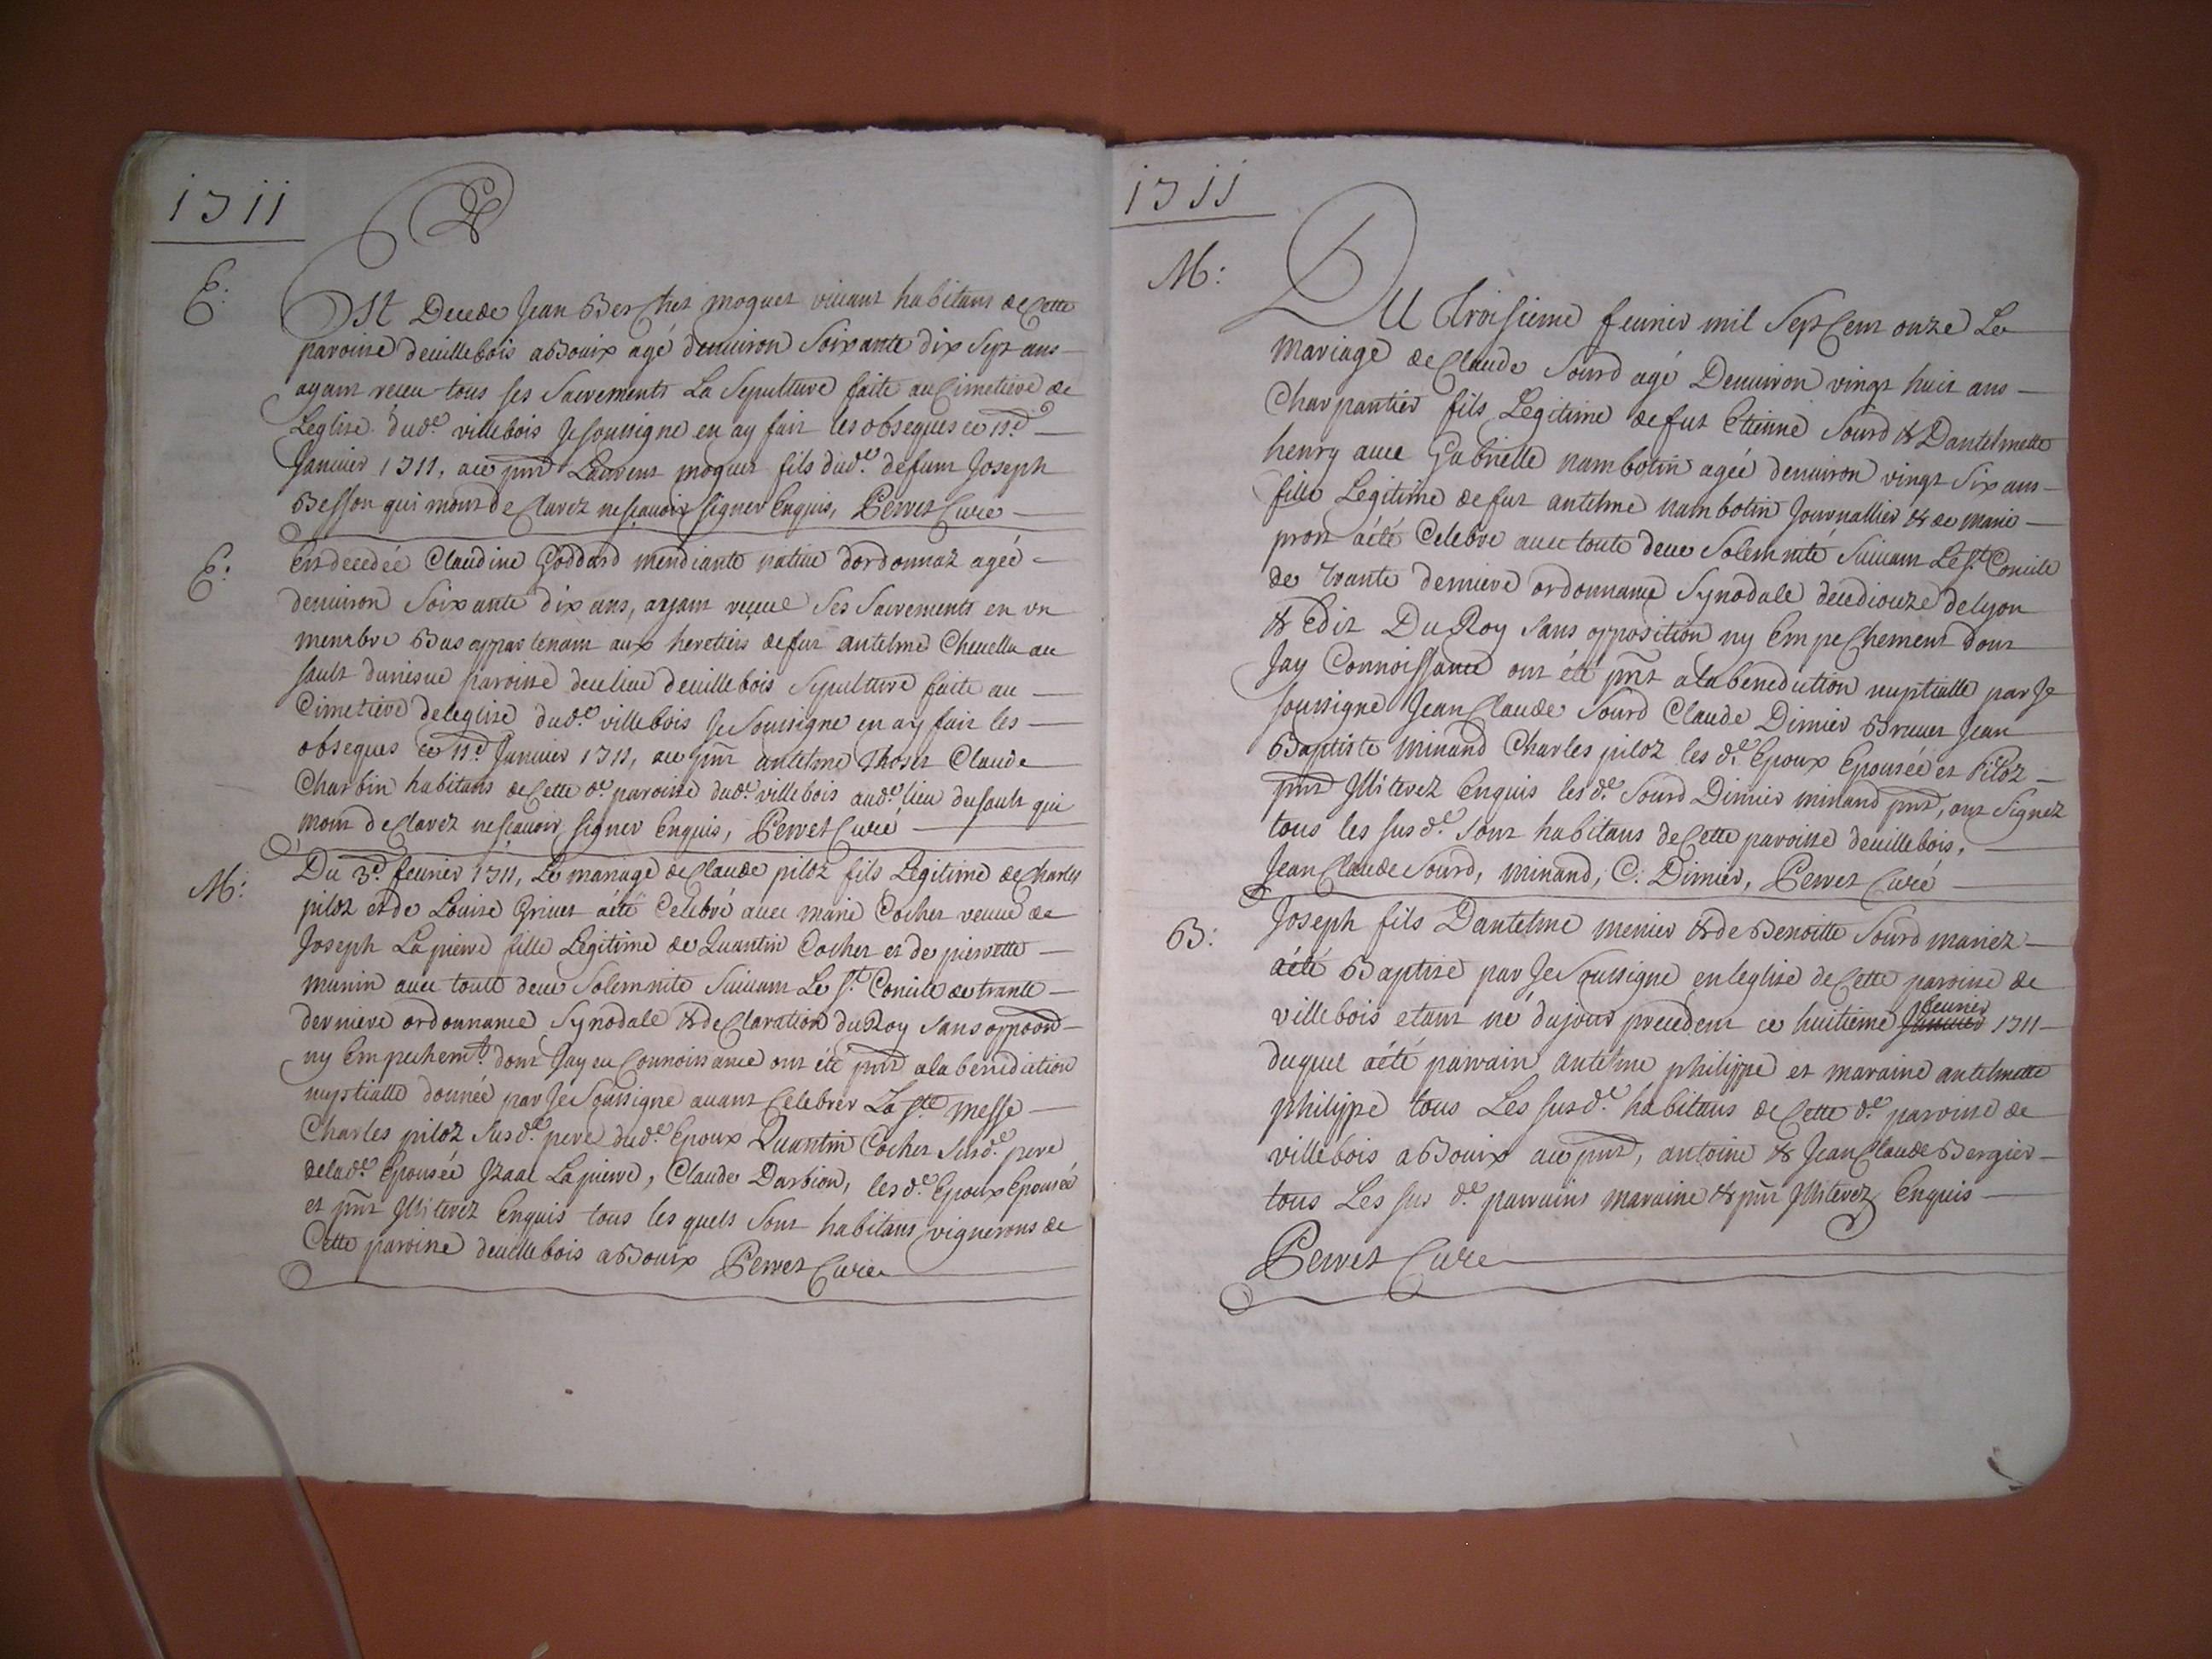 1711
E:
Est Decede Jean Berchet moguet vivant habitant de Cette
paroisse devillebois aBouix agé denviron Soixante dix Sept ans
ayant receu tous ses Sacrements La Sepulture faite au Cimetiere de
Leglise dud.e villebois Je soussigne en ay fait les obseques ce 11.e
Janvier 1711, ace pnt Laurent moguet fils dud.e defunt Joseph
Besson qui mont declarez nesçavoir signer Enquis, Perret Cure
E:
Est decedée Claudine Goddard mendiante native dordonnaz agée
denviron Soixante dix ans, ayant receue Ses Sacrements en un
membre Bas appartenant aux heretiers defut antelme Chevella au
sault paroisse devillebois Sepulture faite au
Cimetiere deleglise dud.e villebois Je Soussigne en ay fait les
obseques ce 11.e Janvier 1711, ace pnt antelme Thoset Claude
Charbin habitans de Cette d.e paroisse dud.e villebois aud.e lieu dusault qui
mont declarez nesçavoir signer Enquis, Perret Curé
M:
Du 3.e fevrier 1711, Le mariage de Claude piloz fils Legitime de Charles
piloz et de Louise Grivet aété Celebré avec marie Cochet veuve de
Joseph Lapierre fille Legitime de Quantin Cochet et de pierrette
munin avec toute deue Solemnite Suivant Le S.t Concile de trante
derniere ordonnance Synodale & declaration du Roy Sans oppoon
ny Empechemt. dont Jay eu Connoissance ont été pnt ala benediction
nuptialle donnée par Je Soussigne avant Celebrer La Ste messe
Charles piloz Susd.e pere dud.e Epoux Quantin Cochet Susd.e pere
delad.e Epousée Izaac Lapierre, Claude Darbion, les d.e Epoux Epousée
et pnt Illiterez Enquis tous les quels Sont habitans vignerons de
Cette paroisse devillebois aBouix Perret Cure
1711
M:
DU Troisieme fevrier mil Sept Cent onze Le
Mariage de Claude Sourd agé Denviron vingt huit ans
Charpantier fils Legitime defut Etienne Sourd & Dantelmette
henry avec Gabrielle nambotin agée denviron vingt Six ans
fille Legitime defut antelme nambotin Journallier & de marie
prost aété Celebre avec toute deue Solemnité Suivant Le S.t Concile
de trante derniere ordonnance Synodale decediouze delyon
& Edit Du Roy Sans opposition ny Empechement dont
Jay Connoissance ont été pnt ala benediction nuptialle par Je
soussigne Jean Claude Sourd Claude Dimier Brevet Jean
Baptiste minand Charles piloz les d.e Epoux Epousée et Piloz
pnt Illiterez Enquis les d.e Sourd Dimier minand pnt, ont Signez
tous les sus d.e Sont habitans de Cette paroisse devillebois,
Jean Claude Sourd, minand, C. Dimier, Perret Curé
B:
Joseph fils Dantelme menier & de Benoitte Sourd mariez
aété Baptise par Je Soussigne en leglise de Cette paroisse de
fevrier
villebois etant né dujour precedent ce huitieme Janvier 1711
duquel aété parrain antelme philippe et maraine antelmette
philippe tous Les susd.e habitans de Cette d.e paroisse de
villebois aBouix ace pnt, antoine & Jean Claude Bergier
tous Les sus d.e parrains maraine & pnt Illiterez Enquis
Perret Cure